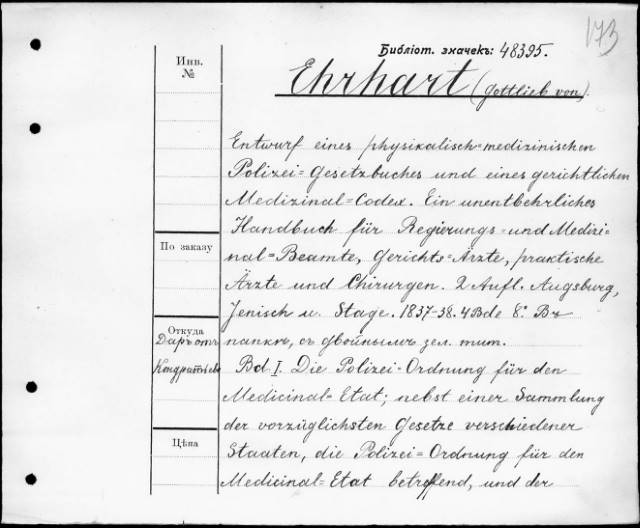 173
Библіот. значекъ: 48395.
Инв.
№
Ehrhart (Gottlieb von).
Entwurf eines physikalisch=medizinischen
Polizei=Gesetzbuches und eines gerichtlichen
Medizinal=Codex. Ein unentbehrliches
Handbuch für Regierungs=und Medizi=
nal=Beamte, Gerichts=Ärzte, praktische
Ärzte und Chirurgen. 2 Aufl. Augsburg,
Jenisch u. Stage. 1837-38. 4 Bde 8°. Въ
папкѣ, съ двойнымъ зел. тит.
Bd I. Die Polizei=Ordnung für den
Medicinal=Etat; nebst einer Sammlung
der vorzüglichsten Gesetze verschiedener
Staaten, die Polizei=Ordnung für den
Medicinal=Etat betreffend, und der
По заказу
Откуда
Даръ отъ
Цѣна